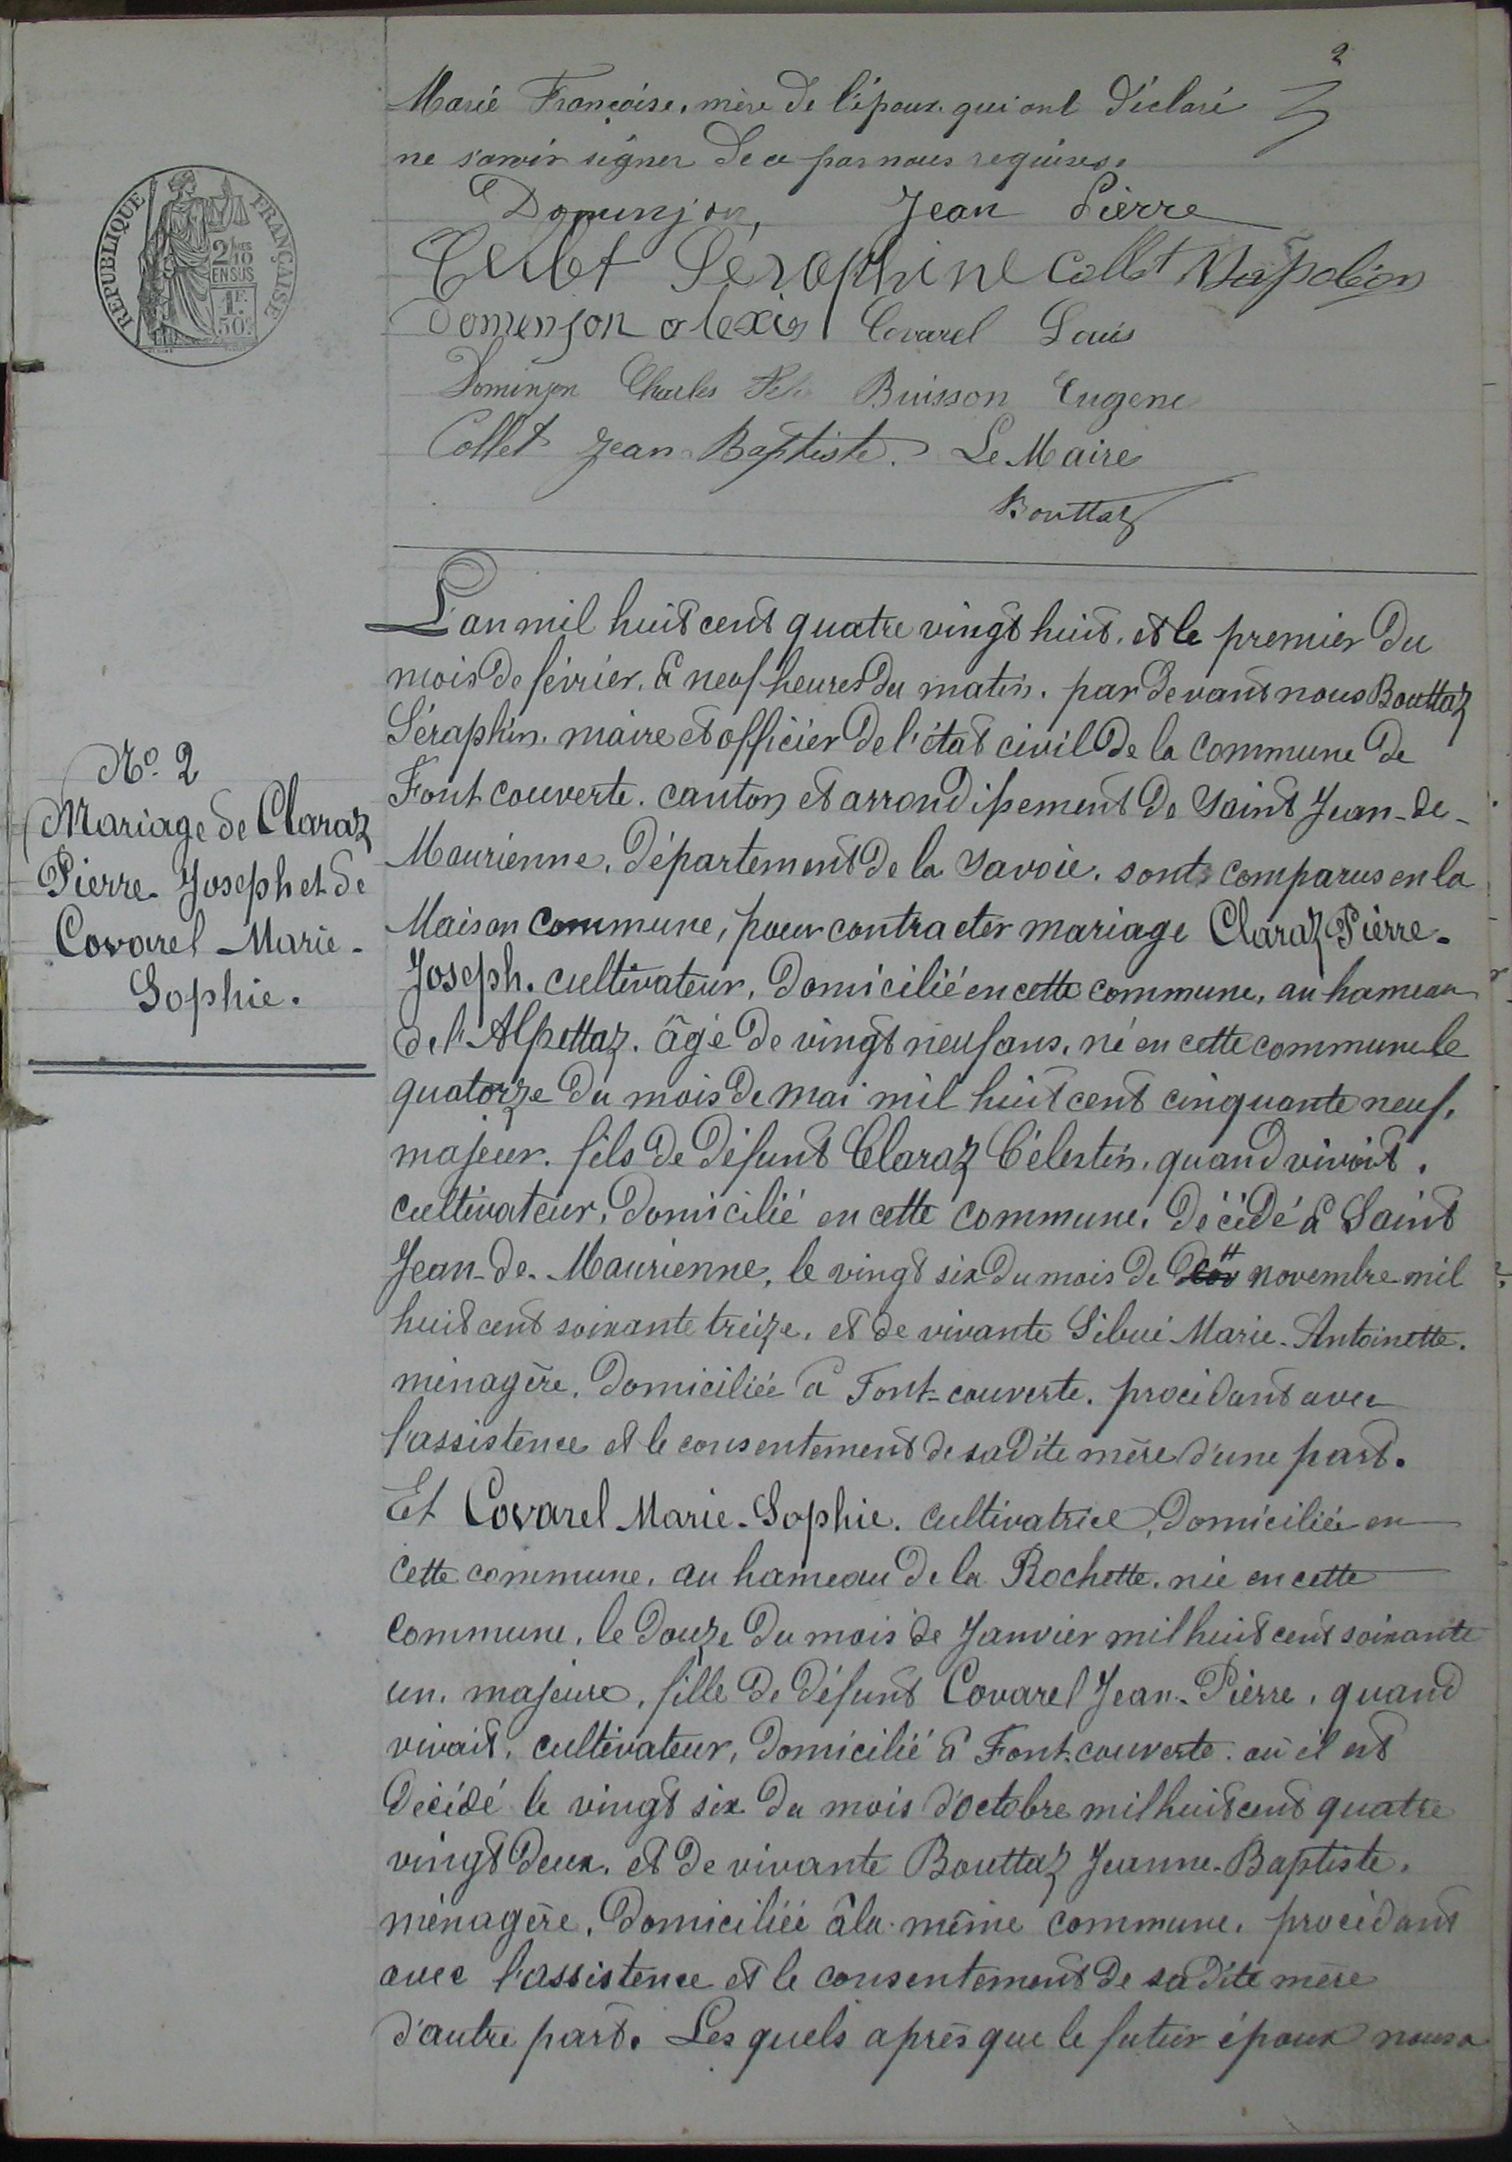 2
Marie Françoise, mère de l'époux qui ont déclaré
ne savoir signer de ce par nous requises.
Domenjon, Jean Pierre
Séraphine Collet Napoléon
Domenjon alexis Covarel Louis
Dominjon Charles Buisson Eugene
Collet Jean Baptiste. Le Maire
Bouttaz
REPUBLIQUE FRANÇAISE
2/10
EN SUS
1F.
50c.
No. 2
Mariage de Claraz
Pierre Joseph et de
Covarel Marie-
Sophie.
L'an mil huit cent quatre vingt huit, et le premier du
mois de février, à neuf heures du matin, par devant nous Bouttaz
Séraphin, maire et officier de l'état civil de la commune de
Font couverte, canton et arrondissement de Saint Jean-de-
Maurienne, département de la Savoie, sont comparus en la
Maison commune, pour contracter mariage Claraz Pierre-
Joseph, cultivateur, domicilié en cette commune, au hameau
de l'Alpettaz, âgé de vingt neuf ans, né en cette commune le
quatorze du mois de mai mil huit cent cinquante neuf,
majeur, fils de défunt Claraz Célestin, quand vivait,
cultivateur, domicilié en cette commune, décédé à Saint
Jean-de-Maurienne, le vingt six du mois de novembre mil
huit cent soixante treize, et de vivante Sibué Marie-Antoinette,
ménagère, domiciliée à Font-couverte, procédant avec
l'assistence et le consentement de sa dite mère d'une part.
Et Covarel Marie-Sophie, cultivatrice, domiciliée en
cette commune, au hameau de la Rochette, née en cette
commune, le douze du mois de Janvier mil huit cent soixante
un, majeure, fille de défunt Covarel Jean-Pierre, quand
vivait, cultivateur, domicilié à Font-couverte, où il est
décédé le vingt six du mois d'octobre mil huit cent quatre
vingt deux, et de vivante Bouttaz Jeanne-Baptiste,
ménagère, domiciliée à la même commune, procédant
avec l'assistence et le consentement de sa dite mère
d'autre part. Les quels après que le futur époux nous a